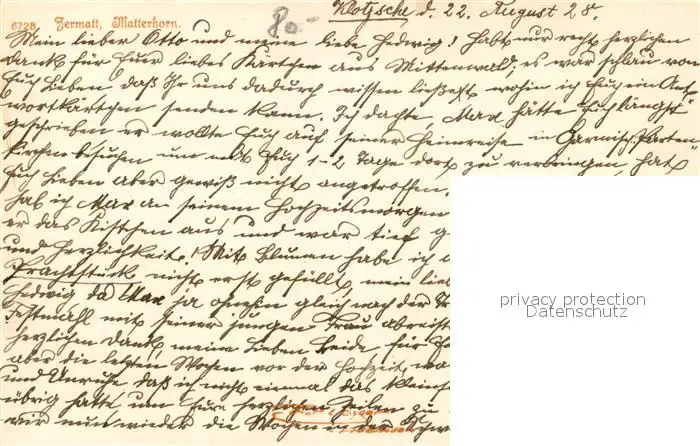 6728. Zermatt, Matterhorn.
80.-
Klotzsche d. 22. August 28.
Mein lieber Otto und meine liebe Hedwig! Habt nur recht herzlichen
Dank für Euer liebes Kärtchen aus Mittenwald; es war schlau von
Euch Lieben, daß Ihr uns dadurch wissen ließet, wohin ich Euch ein Ant-
wortkärtchen senden kann. Ich dachte, Max hätte Euch längst
geschrieben er wollte Euch auf seiner Heimreise in Garmisch-Parten-
kirchen besuchen um mit Euch 1-2 Tage dort zu verbringen, hat
Euch Lieben aber gewiß nicht angetroffen.
hab ich Max an seinem Hochzeitsmorgen
er das Kistchen aus und war tief
und Herzlichkeit! Mit Blumen habe ich
Prachtstück nicht erst gefüllt, mein
Hedwig da Max ja ohnehin gleich nach
Festmahl mit seiner jungen Frau
herzlichen Dank meine Lieben Beide für
aber die letzten Wochen vor der Hochzeit
und Unruhe daß ich nicht einmal das
übrig hatte um Eure herzlichen Zeilen zu
wir nun wieder die Wochen in der
privacy protection
Datenschutz